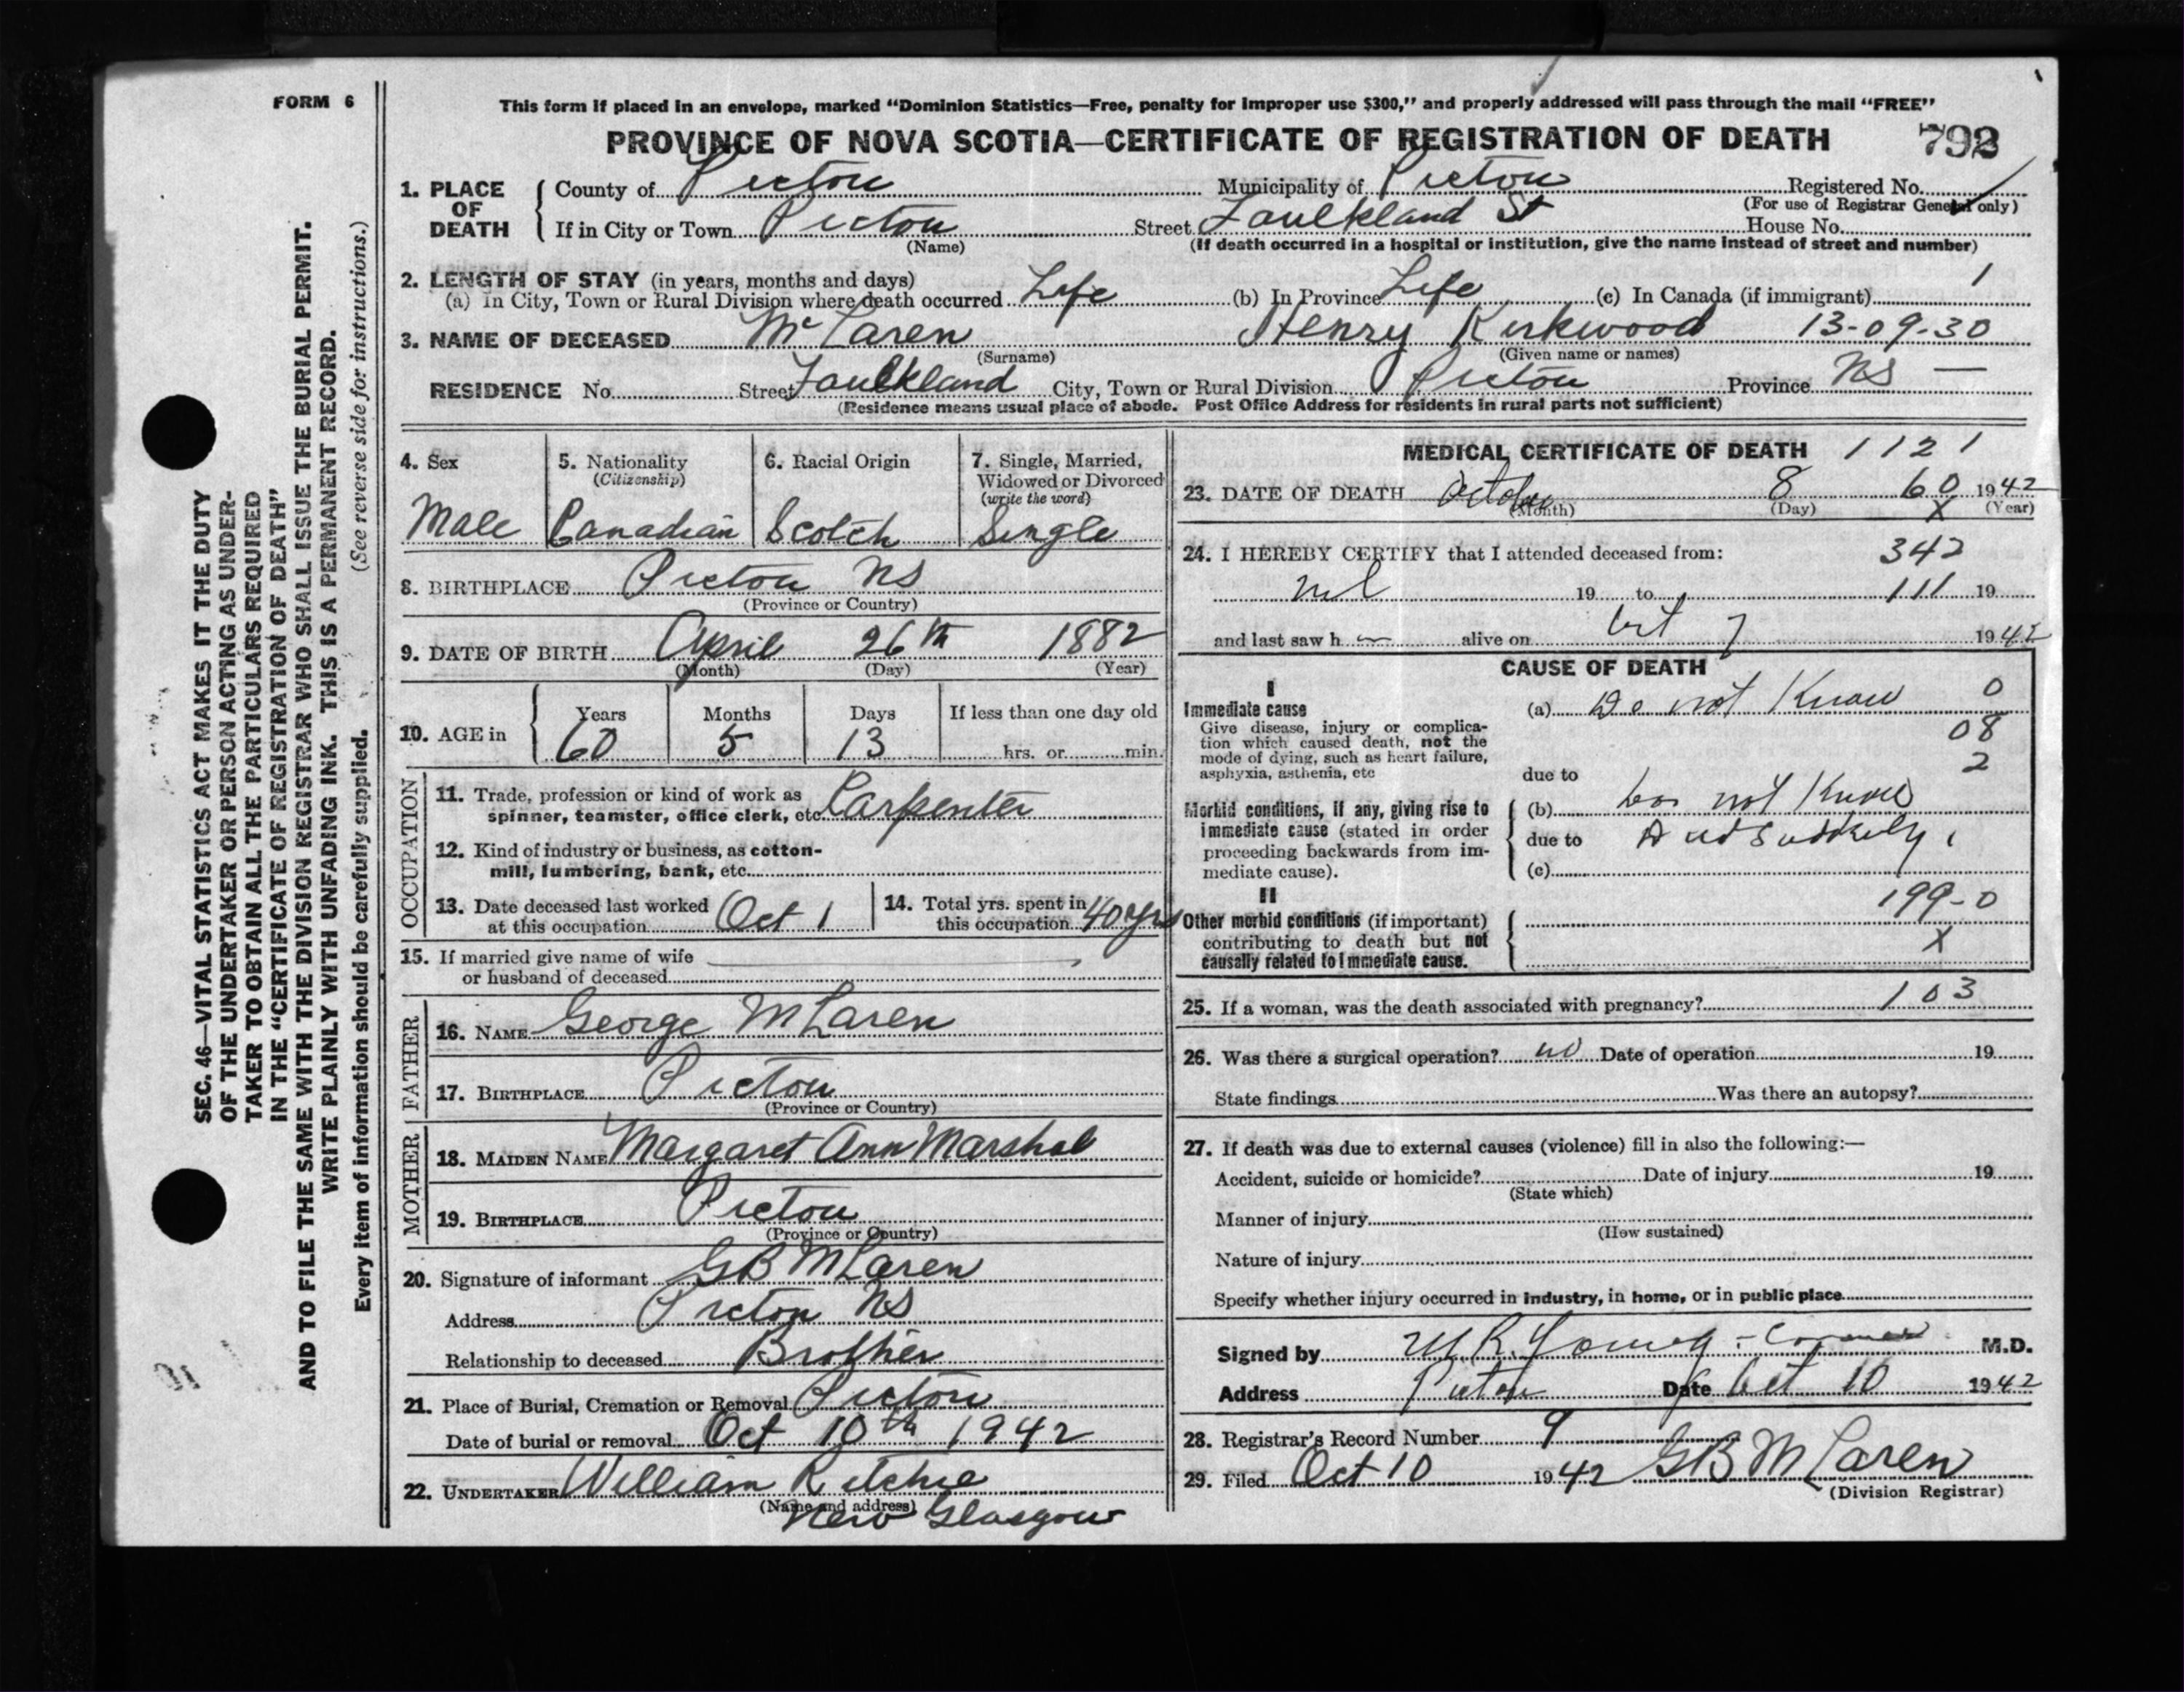 FORM 6
This form if placed in an envelope, marked "Dominion Statistics—Free, penalty for improper use $300," and properly addressed will pass through the mail "FREE"
PROVINCE OF NOVA SCOTIA—CERTIFICATE OF REGISTRATION OF DEATH
792
SEC. 46—VITAL STATISTICS ACT MAKES IT THE DUTY
OF THE UNDERTAKER OR PERSON ACTING AS UNDER-
TAKER TO OBTAIN ALL THE PARTICULARS REQUIRED
IN THE "CERTIFICATE OF REGISTRATION OF DEATH"
AND TO FILE THE SAME WITH THE DIVISION REGISTRAR WHO SHALL ISSUE THE BURIAL PERMIT.
WRITE PLAINLY WITH UNFADING INK. THIS IS A PERMANENT RECORD.
Every item of information should be carefully supplied. (See reverse side for instructions.)
1. PLACE OF DEATH County of Pictou Municipality of Pictou Registered No.
(For use of Registrar General only)
If in City or Town Pictou Street Faulkland St House No.
(Name) (If death occurred in a hospital or institution, give the name instead of street and number)
2. LENGTH OF STAY (in years, months and days) 1
(a) In City, Town or Rural Division where death occurred Life (b) In Province Life (c) In Canada (if immigrant)
3. NAME OF DECEASED McLaren Henry Kirkwood 13-09-30
(Surname) (Given name or names)
RESIDENCE No. Street Faulkland City, Town or Rural Division Pictou Province NS —
(Residence means usual place of abode. Post Office Address for residents in rural parts not sufficient)
4. Sex 5. Nationality 6. Racial Origin 7. Single, Married,
(Citizenship) Widowed or Divorced
(write the word)
Male Canadian Scotch Single
8. BIRTHPLACE Pictou NS
(Province or Country)
9. DATE OF BIRTH April 26th 1882
(Month) (Day) (Year)
10. AGE in Years Months Days If less than one day old
60 5 13 hrs. or min.
OCCUPATION
11. Trade, profession or kind of work as
spinner, teamster, office clerk, etc. Carpenter
12. Kind of industry or business, as cotton-
mill, lumbering, bank, etc.
13. Date deceased last worked
at this occupation Oct 1
14. Total yrs. spent in
this occupation 40 yrs
15. If married give name of wife
or husband of deceased
FATHER
16. NAME George McLaren
17. BIRTHPLACE Pictou
(Province or Country)
MOTHER
18. MAIDEN NAME Margaret Ann Marshal
19. BIRTHPLACE Pictou
(Province or Country)
20. Signature of informant GB McLaren
Address Pictou NS
Relationship to deceased Brother
21. Place of Burial, Cremation or Removal Pictou
Date of burial or removal Oct 10th 1942
22. UNDERTAKER William Ritchie
(Name and address)
New Glasgow
MEDICAL CERTIFICATE OF DEATH 1121
23. DATE OF DEATH October 8 60 1942
(Month) (Day) X (Year)
24. I HEREBY CERTIFY that I attended deceased from: 342
nil 19 to 111 19
and last saw h alive on Oct 7 1942
CAUSE OF DEATH
I
Immediate cause (a) Do not Know 0
Give disease, injury or complica-
tion which caused death, not the 08
mode of dying, such as heart failure,
asphyxia, asthenia, etc 2
due to
Morbid conditions, if any, giving rise to
immediate cause (stated in order
proceeding backwards from im-
mediate cause).
(b) Do not Know
due to Died Suddenly
(c)
II
199-0
Other morbid conditions (if important)
contributing to death but not
causally related to immediate cause.
X
25. If a woman, was the death associated with pregnancy? 103
26. Was there a surgical operation? no Date of operation 19
State findings Was there an autopsy?
27. If death was due to external causes (violence) fill in also the following:—
Accident, suicide or homicide? Date of injury 19
(State which)
Manner of injury
(How sustained)
Nature of injury
Specify whether injury occurred in industry, in home, or in public place
Signed by M R. Young - Coroner M.D.
Address Pictou Date Oct 10 1942
28. Registrar's Record Number 9
29. Filed Oct 10 1942 GB McLaren
(Division Registrar)